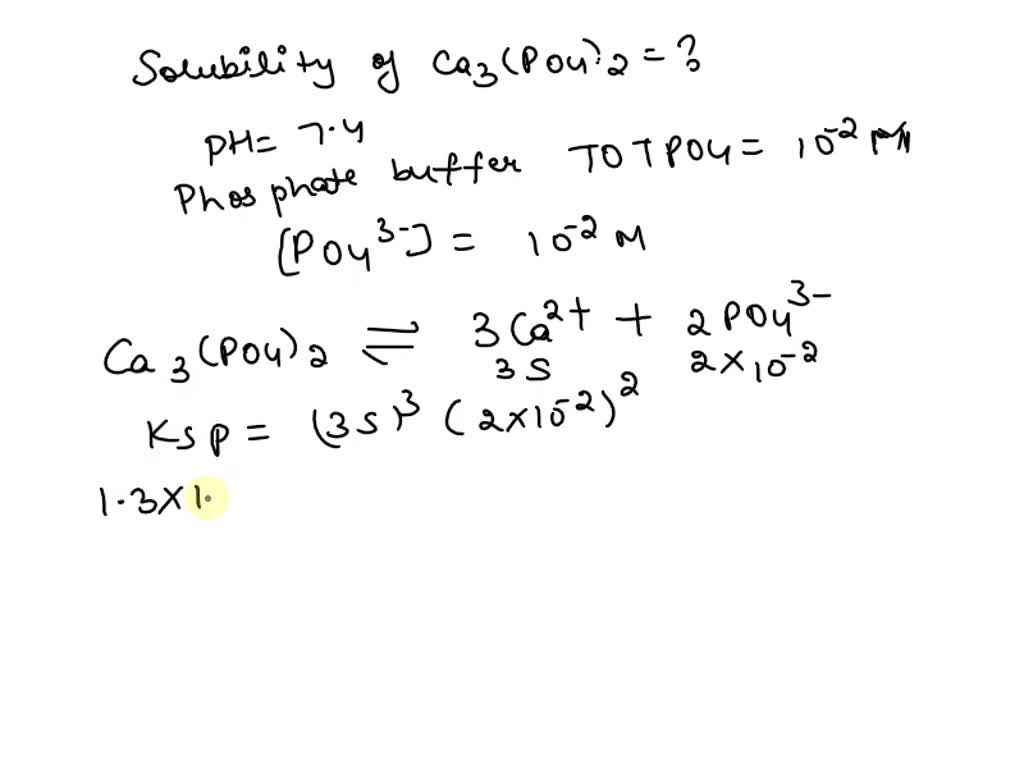 Solubility of Ca3(PO4)2 = ?
PH = 7.4
Phosphate buffer TOTPO4 = 10^-2 M
[PO4^3-] = 10^-2 M
Ca3(PO4)2 ⇌ 3Ca^2+ + 2PO4^3-
3S 2×10^-2
Ksp = (3S)^3 (2×10^-2)^2
1.3×1